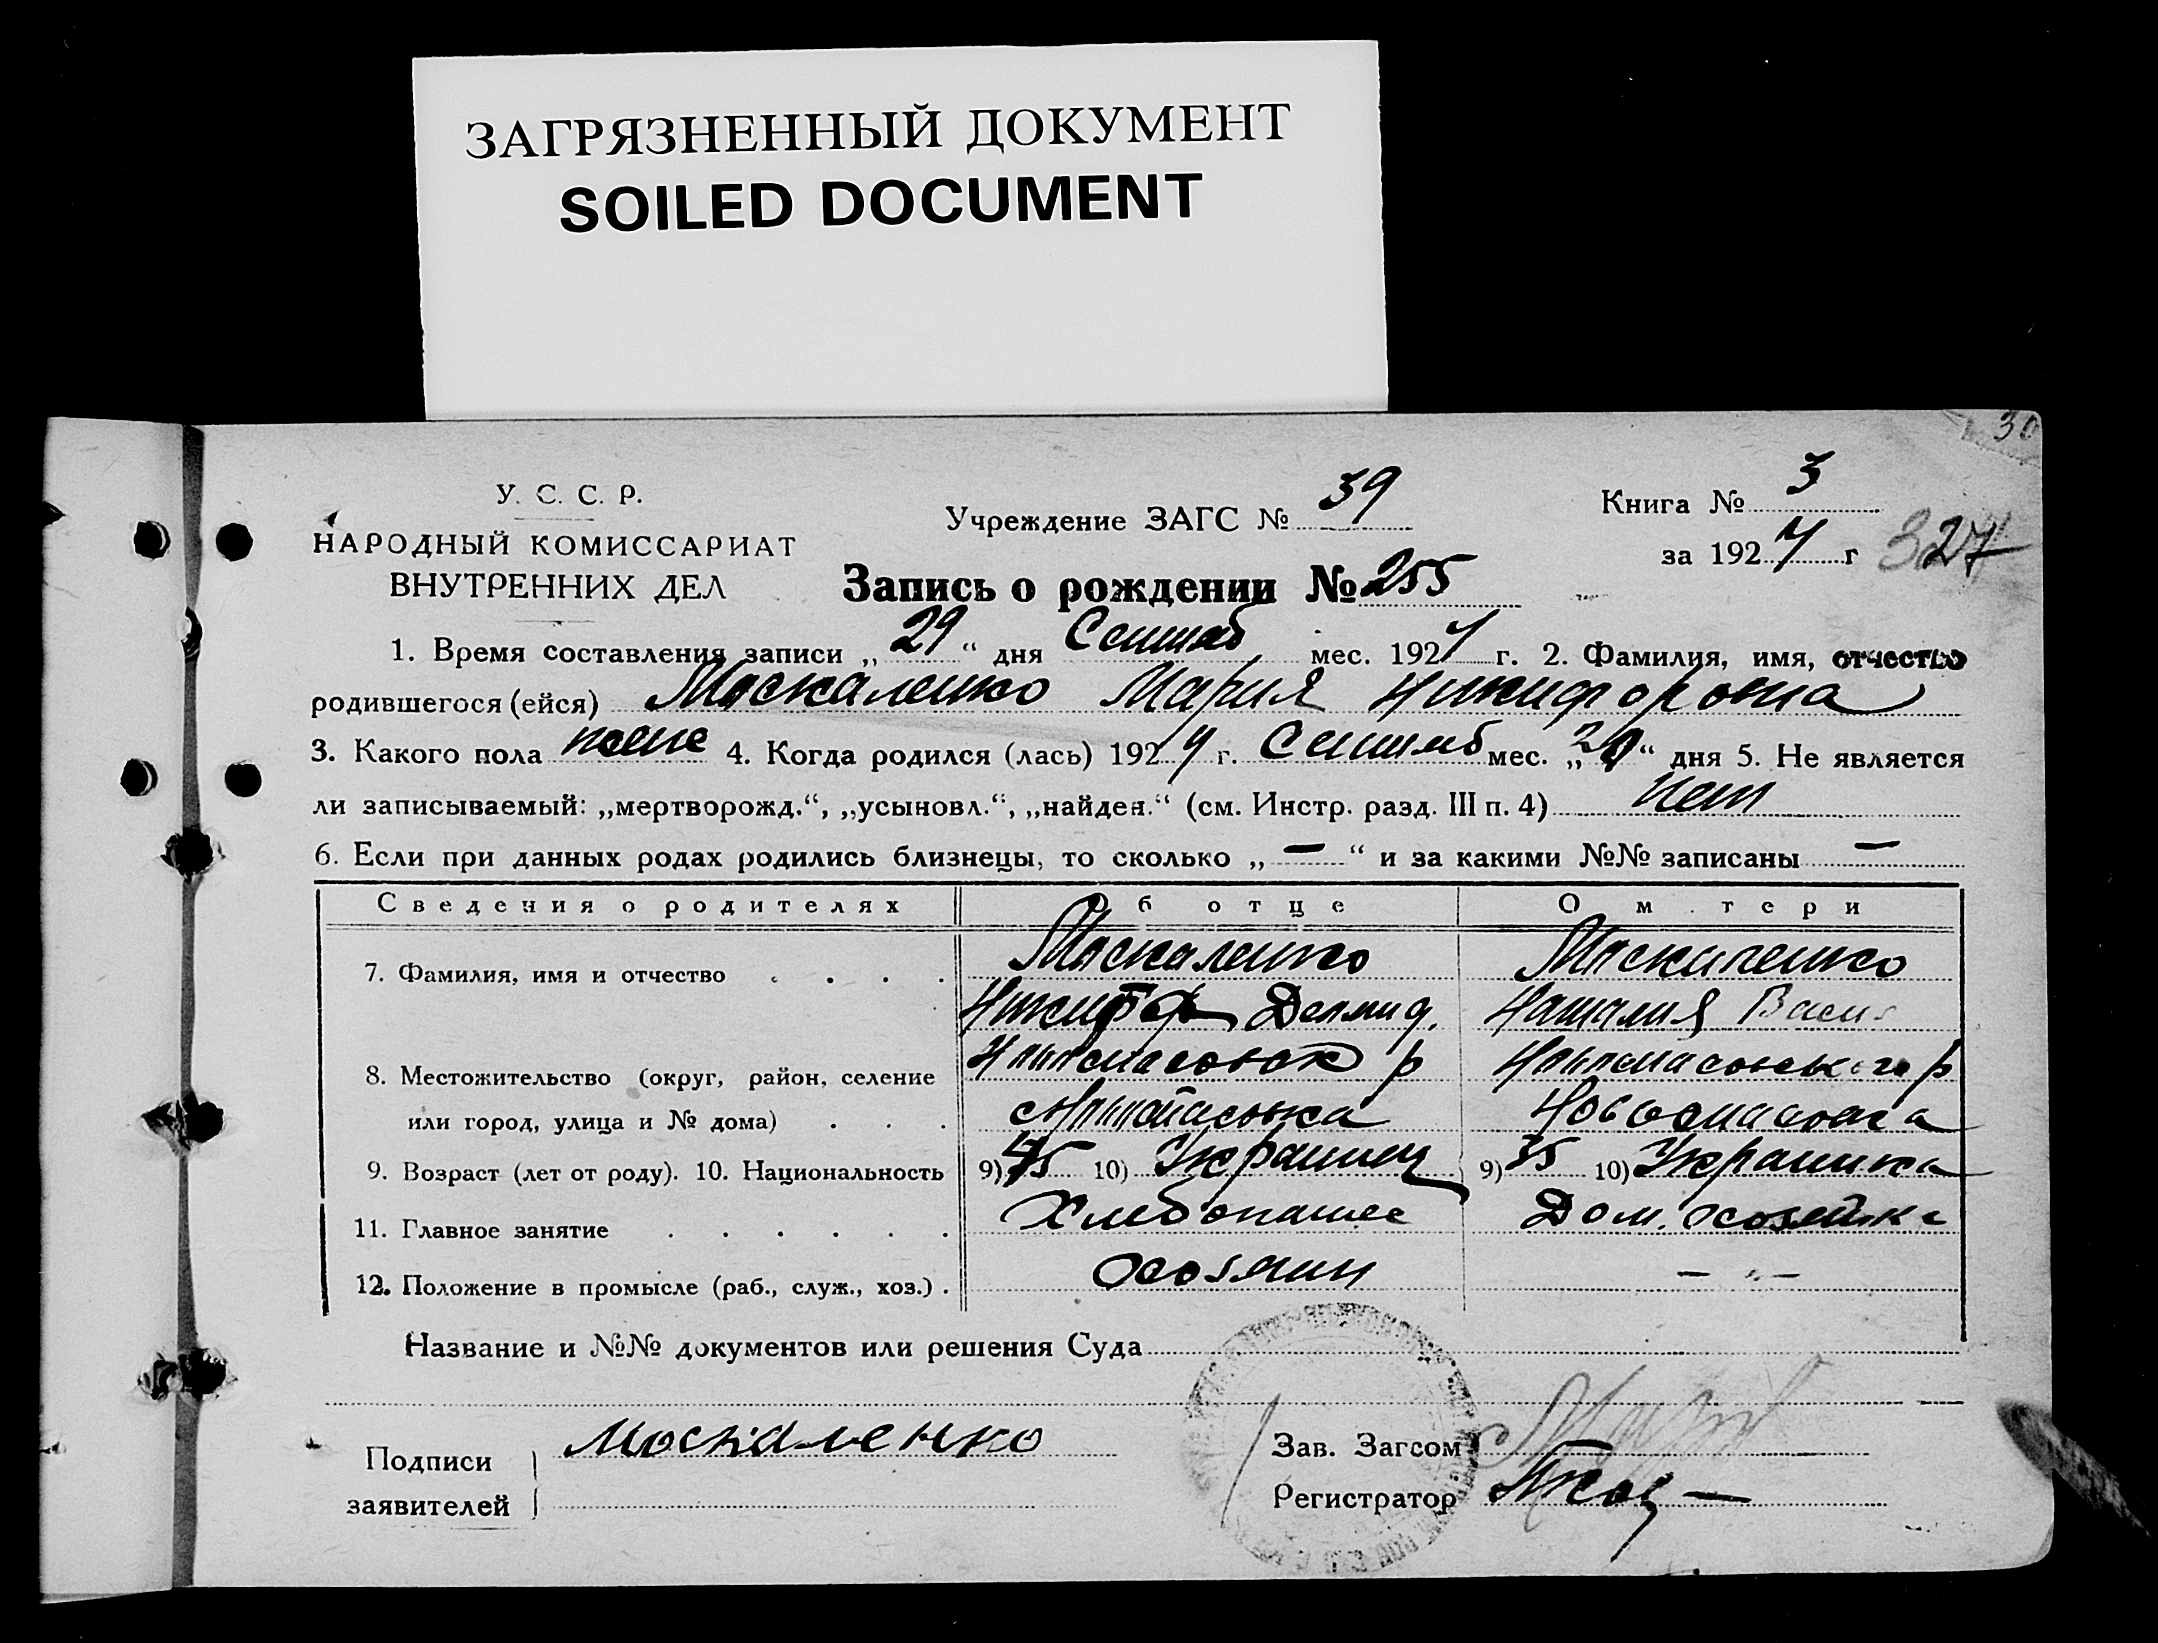 ЗАГРЯЗНЕННЫЙ ДОКУМЕНТ
SOILED DOCUMENT
30
У. С. С. Р.
НАРОДНЫЙ КОМИССАРИАТ
ВНУТРЕННИХ ДЕЛ
Учреждение ЗАГС № 39
Книга № 3
за 1924 г
327
Запись о рождении № 255
1. Время составления записи „ 29 “ дня Сентяб мес. 1924 г. 2. Фамилия, имя, отчество
родившегося (ейся) Москаленко Мария Никифоровна
3. Какого пола жене 4. Когда родился (лась) 1924 г. Сентяб мес. „ “ дня 5. Не является
ли записываемый: „мертворожд.“, „усыновл.“, „найден.“ (см. Инстр. разд. III п. 4) нет
6. Если при данных родах родились близнецы, то сколько „ — “ и за какими №№ записаны —
Сведения о родителях Об отце О м тери
7. Фамилия, имя и отчество . . . . Москаленко Москаленко
Никифор Наталия Васи
8. Местожительство (округ, район, селение р р
или город, улица и № дома) . . . Новоспасовка
9. Возраст (лет от роду). 10. Национальность 9) 45 10) Украинец 9) 35 10) Украинка
11. Главное занятие . . . . . . Хлебопашес Дом. хозяйка
12. Положение в промысле (раб., служ., хоз.) . Хозяин — „ —
Название и №№ документов или решения Суда
Подписи заявителей Москаленко
Зав. Загсом
Регистратор